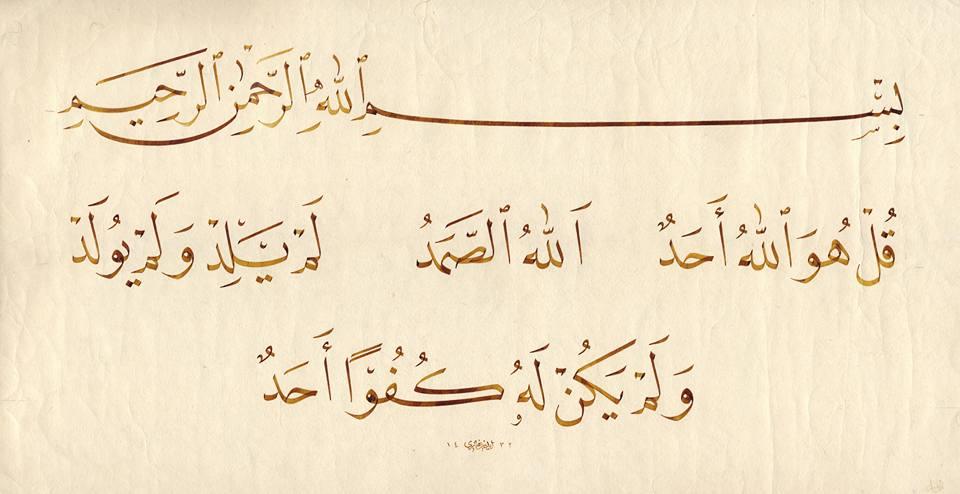 بِسْمِ ٱللَّهِ ٱلرَّحْمَٰنِ ٱلرَّحِيمِ
قُلْ هُوَ ٱللَّهُ أَحَدٌ ٱَللَّهُ ٱلصَّمَدُ لَمْ يَلِدْ وَلَمْ يُولَدْ
وَلَمْ يَكُنْ لَهُ كُفُوًا أَحَدٌ
١٤ ٣٢